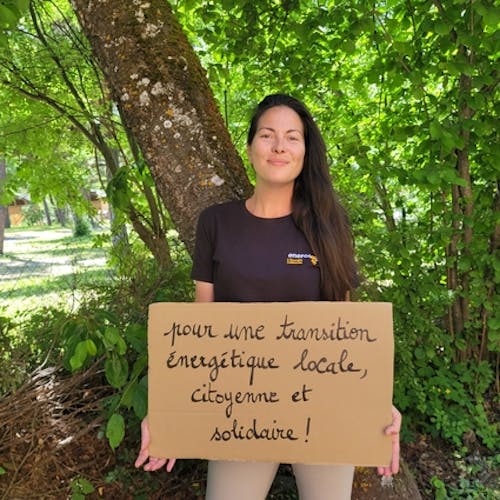 pour une transition
énergétique locale,
citoyenne et
solidaire !